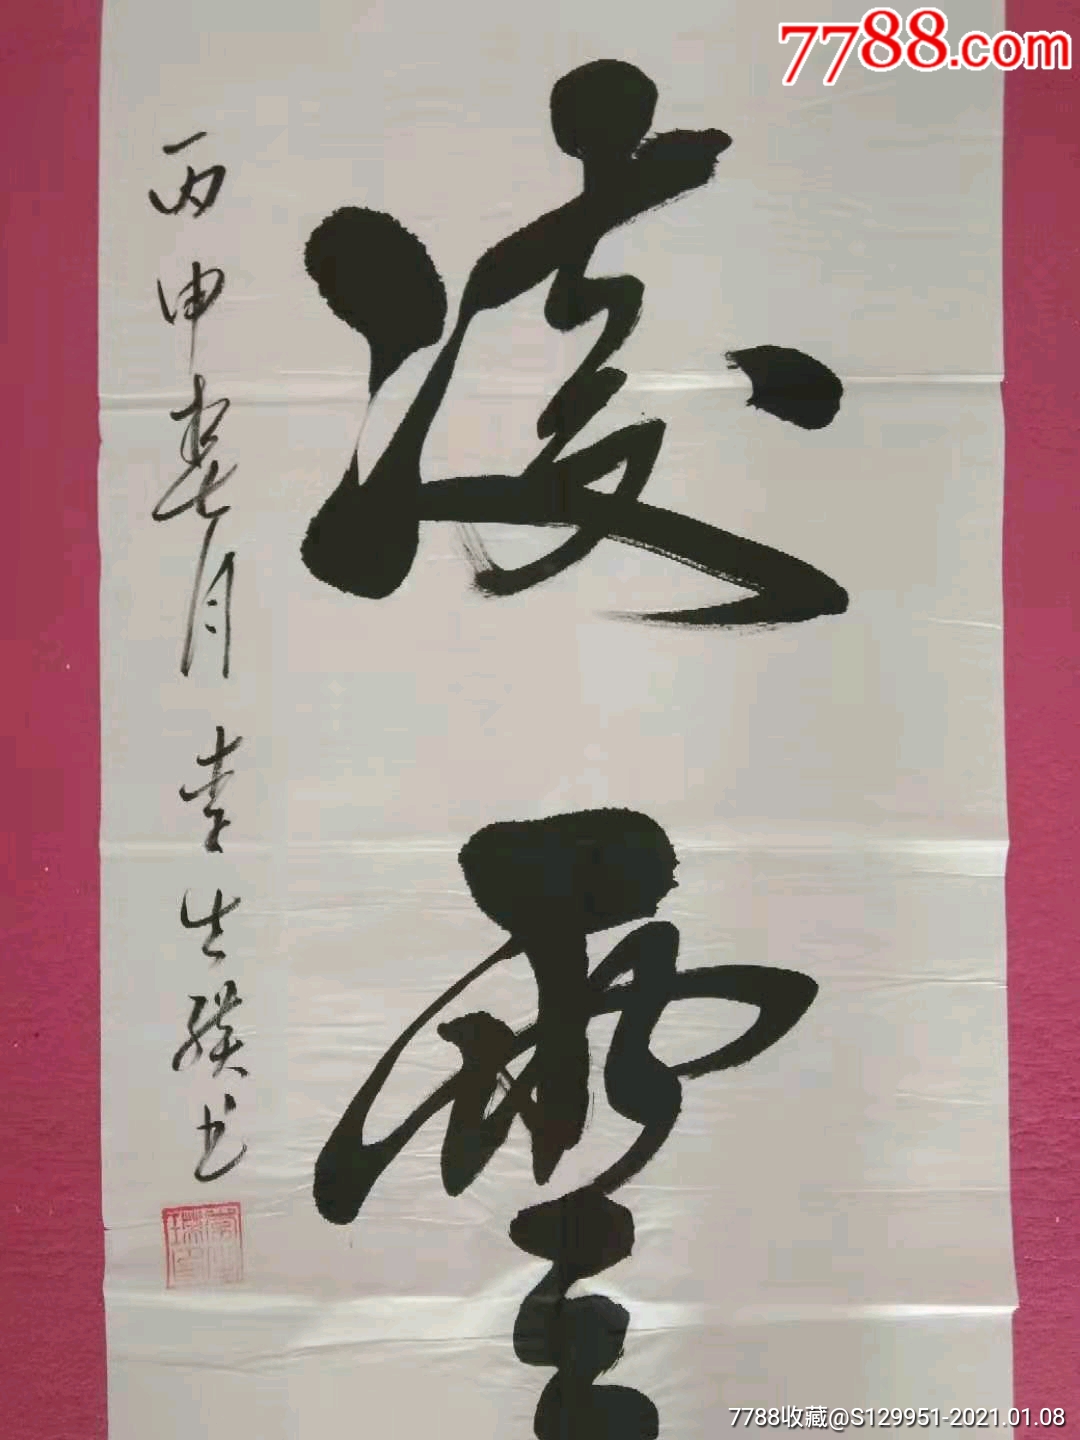 7788.com
凌雲
丙申春月李生騤书
7788收藏@S129951-2021.01.08